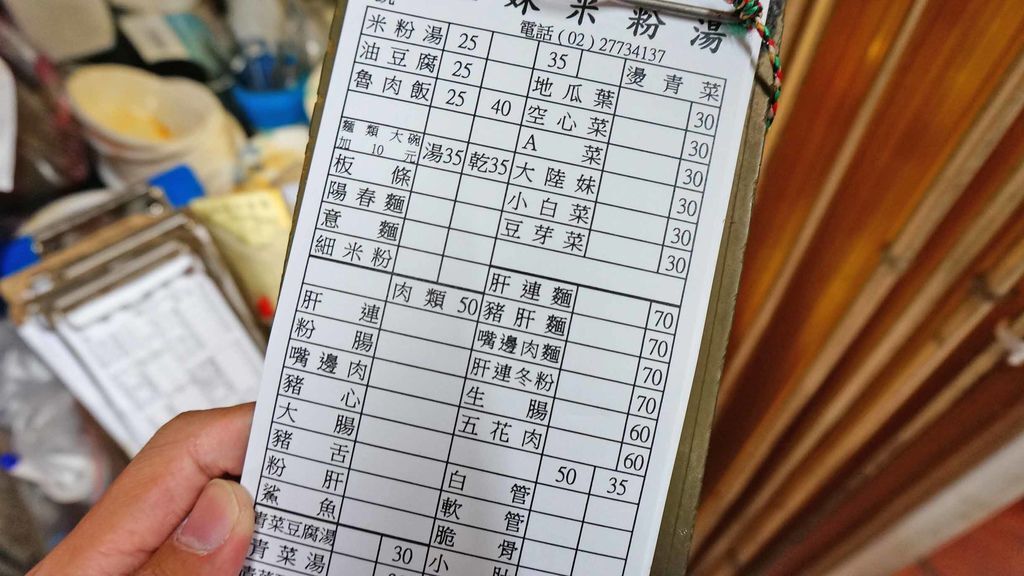 妹米粉湯
電話(02)27734137
米粉湯 25 35 燙青菜
油豆腐 25 地瓜葉 30
魯肉飯 25 40 空心菜 30
A菜 30
麵類大碗加10元 湯35 乾35 大陸妹 30
板條 小白菜 30
陽春麵 豆芽菜 30
意麵
細米粉
肝連麵 70
肉類 50 豬肝麵 70
肝連 嘴邊肉麵 70
粉腸 肝連冬粉 70
嘴邊肉 生腸 60
豬心 五花肉 60
大腸 50 35
豬舌 白管
粉肝 軟管
鯊魚 脆骨
青菜豆腐湯 30 小
青菜湯